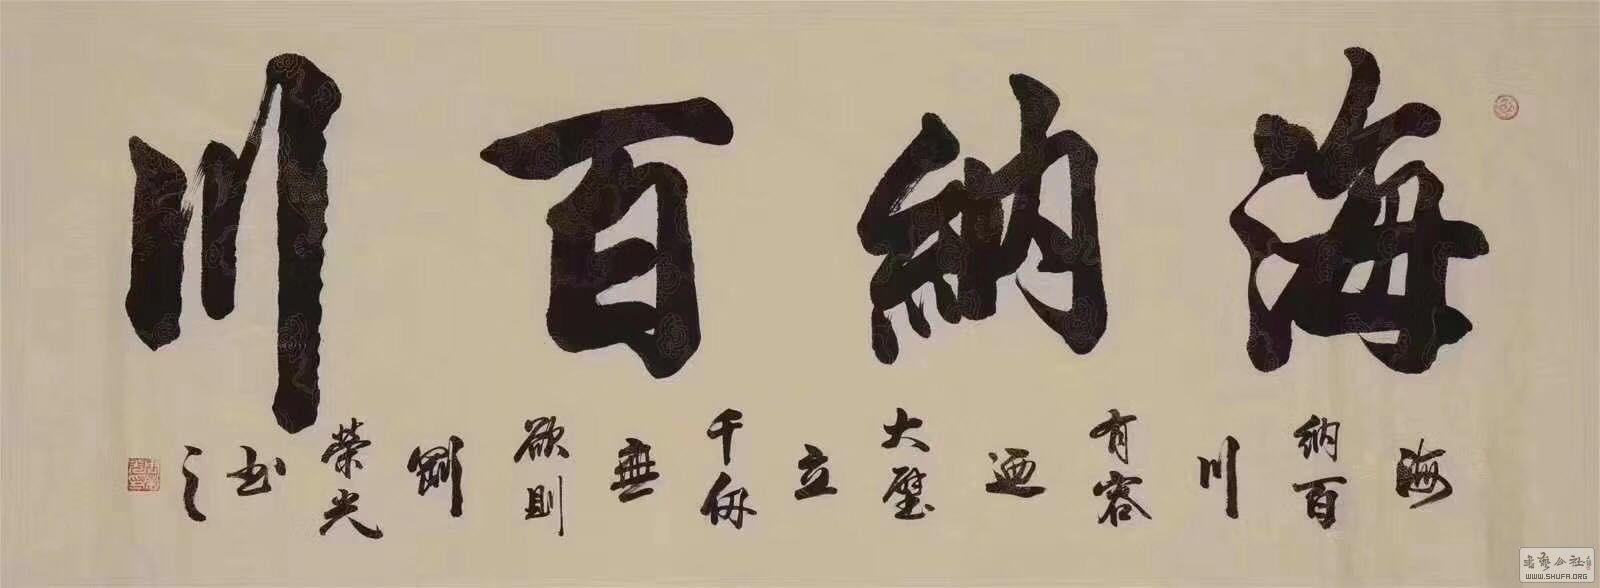 海納百川
海納百川有容迺大壁立千仞無欲則剛榮光书之
书艺公社
WWW.SHUFA.ORG